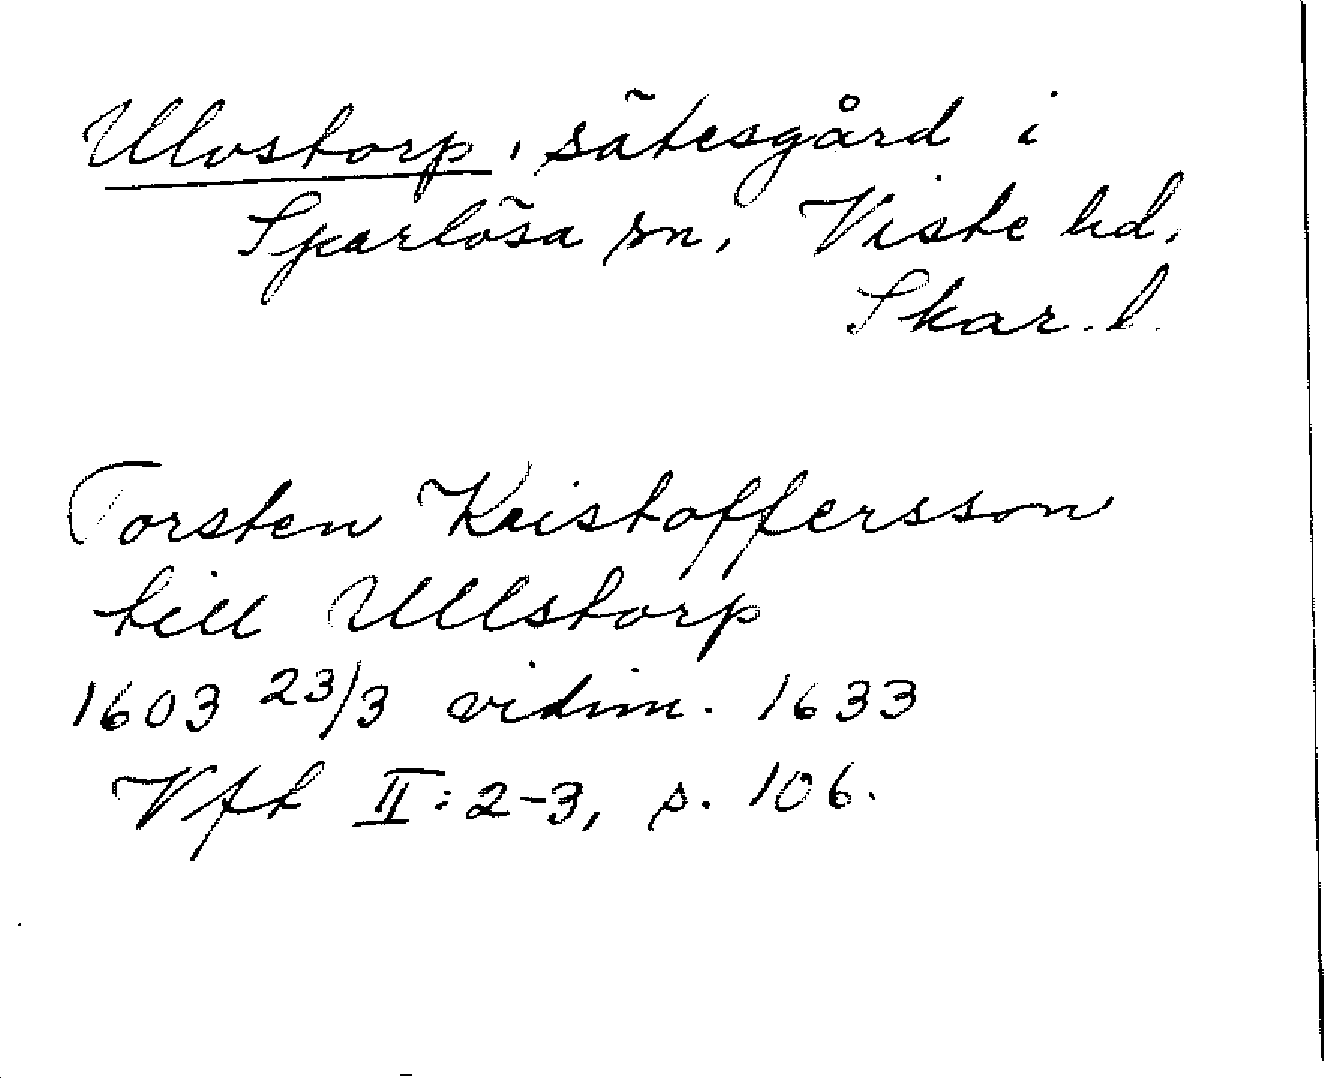 Ulvstorp, sätesgård i
Sparlösa sn, Viste hd,
Skar. l.
Torsten Kristoffersson
till Ullstorp
1603 23/3 vidim. 1633
Vft II:2-3, s. 106.